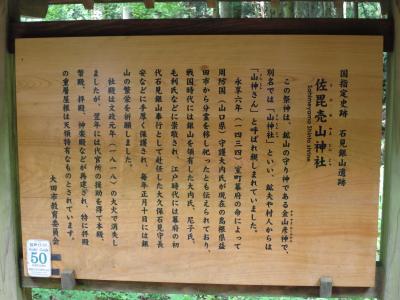 国指定史跡 石見銀山遺跡
佐毘売山神社
さひめやま
Sashimeyama Shinto shrine
この祭神は、鉱山の守り神である金山彦神で、
別名では「山神社」といい、鉱夫や村人からは
「山神さん」と呼ばれ親しまれていました。
永享六年(一四三四)室町幕府の命によって
周防国(山口県)守護大内氏が現在の島根県益
田市から分霊を移し祀ったとも伝えられており
戦国時代には銀山を領有した大内氏、尼子氏、
毛利氏などに崇敬され、江戸時代には幕府の初
代石見銀山奉行として赴任した大久保石見守長
安などに手厚く保護され、毎年正月十日には銀
山の繁栄を祈願しました。
社殿は文政元年(一八一八)の大火で消失し
ましたが、翌元には代官所の援助を得て本殿、
幣殿、拝殿、神楽殿などが再建され、特に拝殿
の重層屋根は天領特有なものとされています。
大田市教育委員会
50